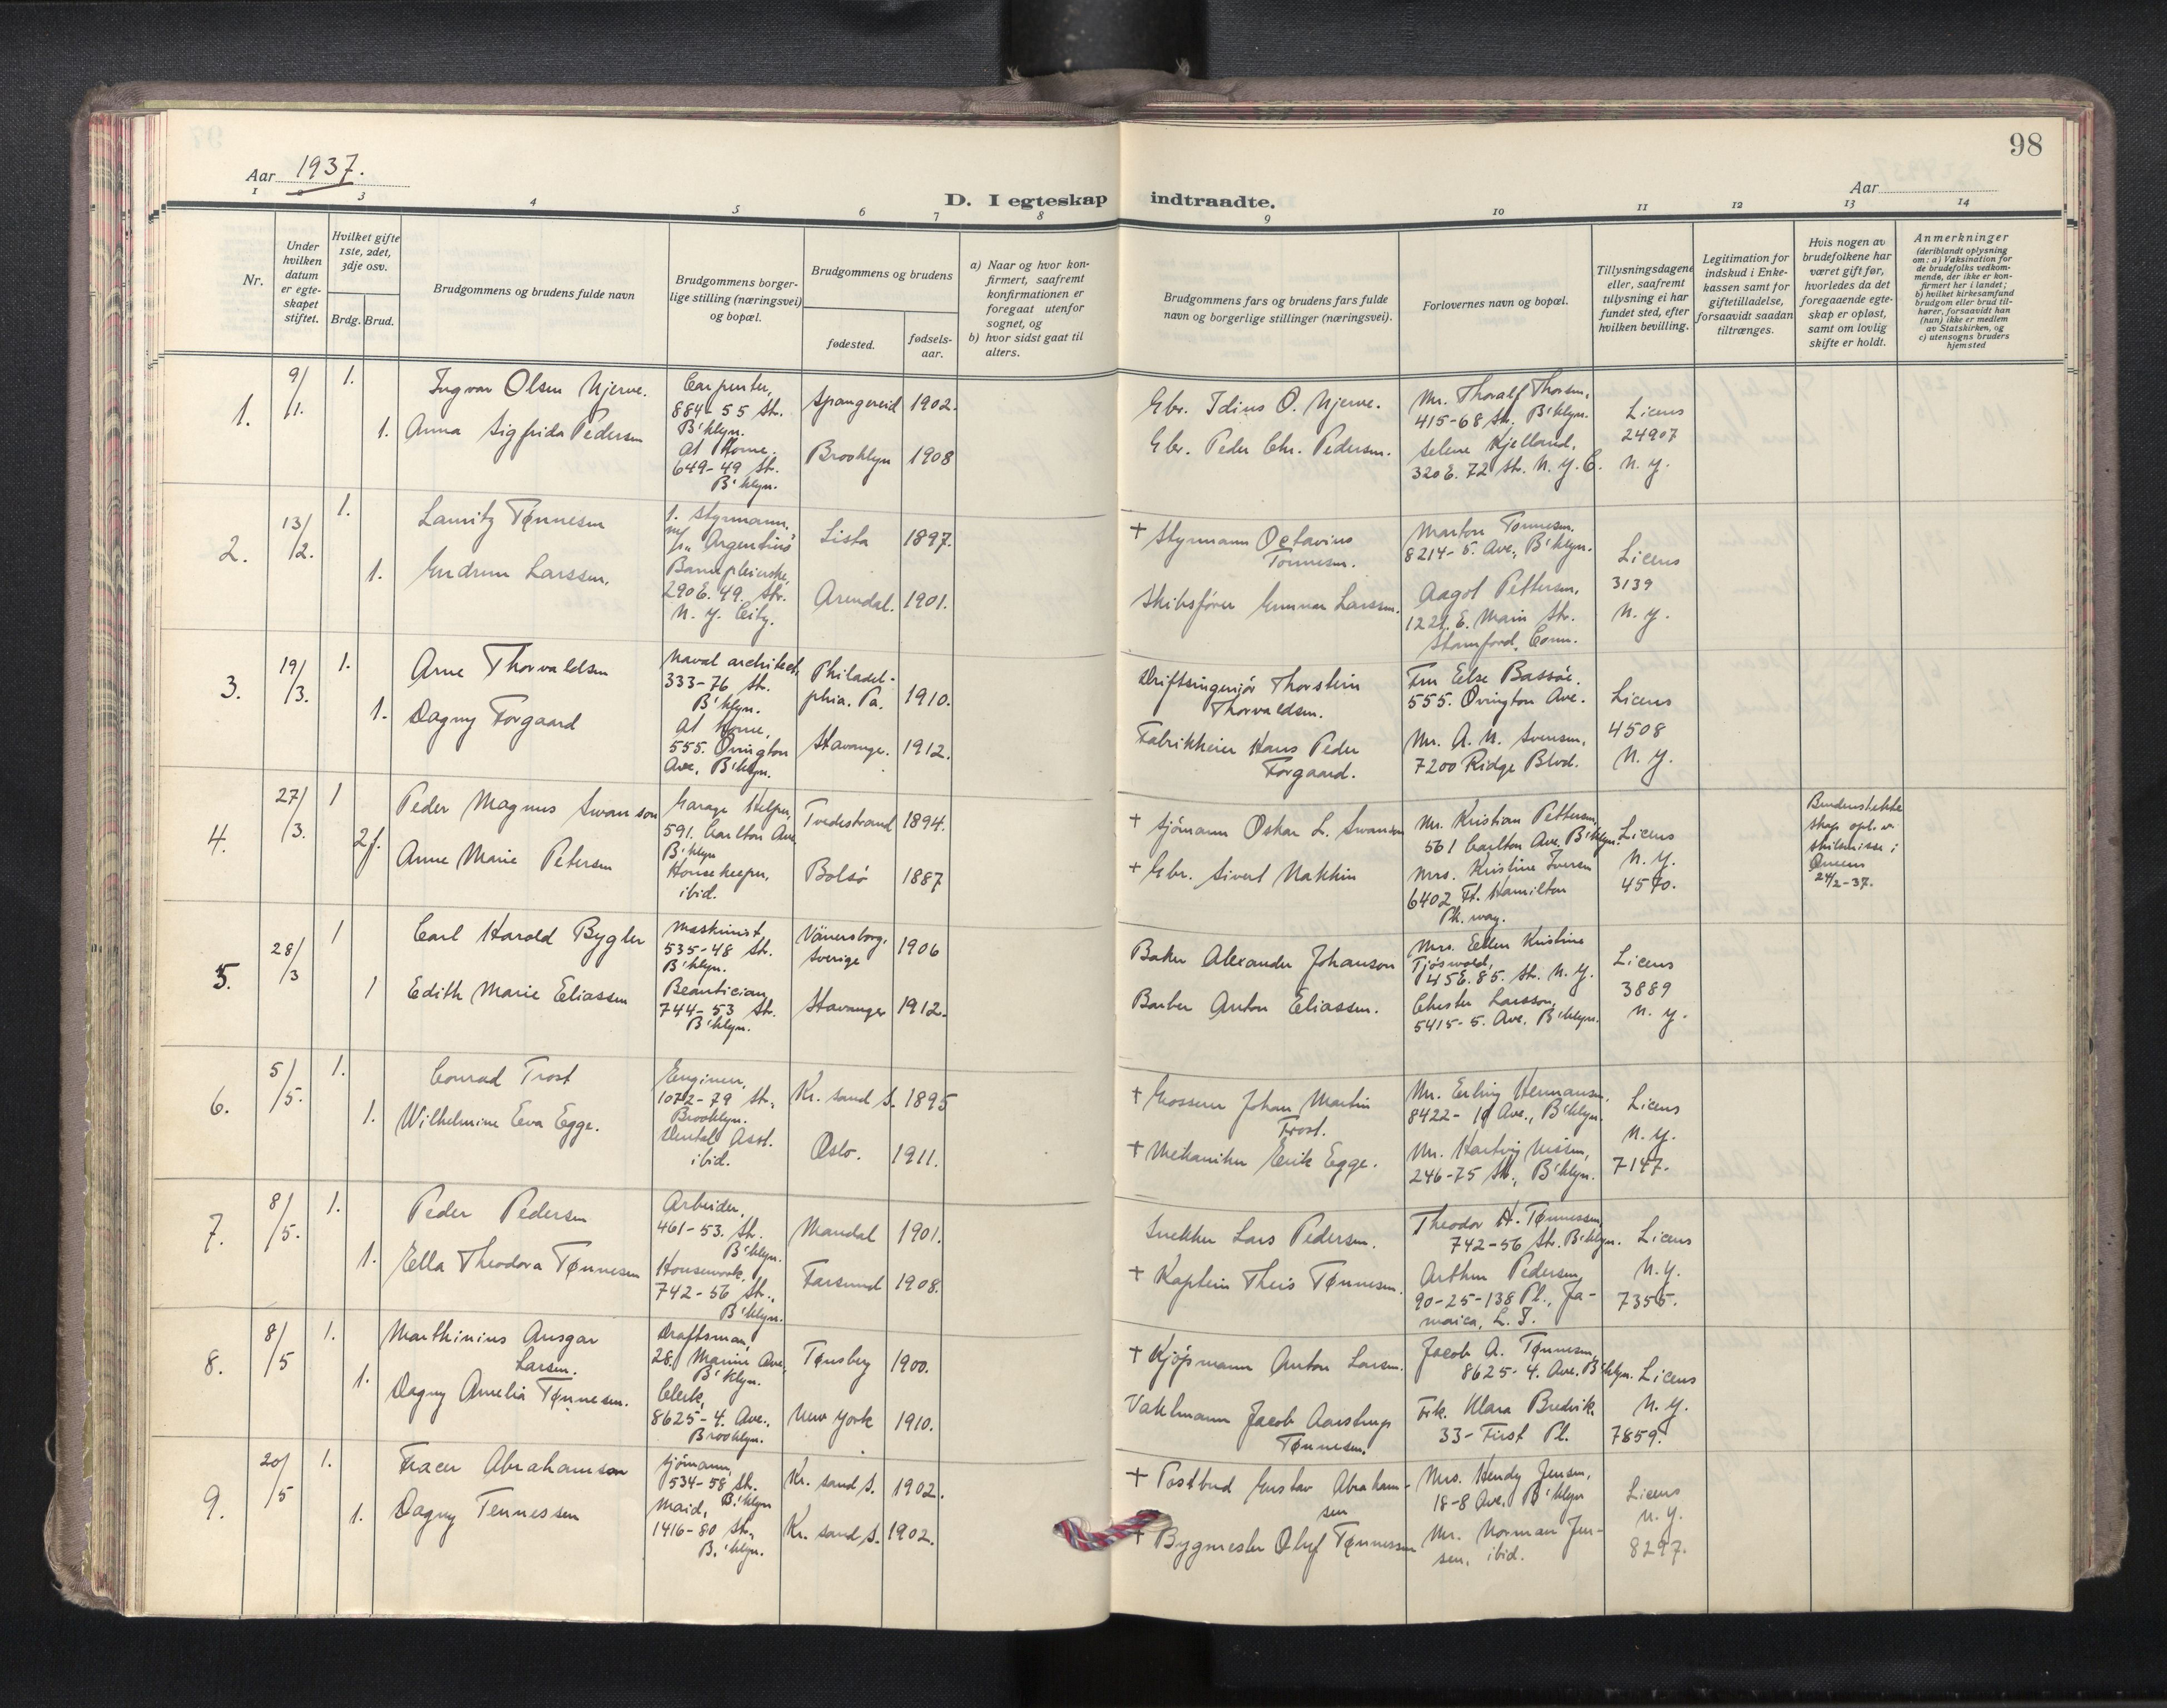 98
Aar 1937.
Aar
D. I egteskap indtraadte.
1 2 3 4 5 6 7 8 9 10 11 12 13 14
Nr.
Under hvilken datum er egteskapet stiftet.
Hvilket gifte 1ste, 2det, 3dje osv.
Brdg. Brud.
Brudgommens og brudens fulde navn
Brudgommens borgerlige stilling (næringsvei) og bopæl.
Brudgommens og brudens
fødested.
fødselsaar.
a) Naar og hvor konfirmert, saafremt konfirmationen er foregaat utenfor sognet, og
b) hvor sidst gaat til alters.
Brudgommens fars og brudens fars fulde navn og borgerlige stillinger (næringsvei).
Forlovernes navn og bopæl.
Tillysningsdagene eller, saafremt tillysning ei har fundet sted, efter hvilken bevilling.
Legitimation for indskud i Enkekassen samt for giftetilladelse, forsaavidt saadan tiltrænges.
Hvis nogen av brudefolkene har været gift før, hvorledes da det foregaaende egteskap er opløst, samt om lovlig skifte er holdt.
Anmerkninger
(deriblandt oplysning om: a) Vaksination for de brudefolks vedkommende, der ikke er konfirmert her i landet;
b) hvilket kirkesamfund brudgom eller brud tilhører, forsaavidt han (hun) ikke er medlem av Statskirken, og
c) utensogns bruders hjemsted
1. 9/1. 1. Ingvar Olsen Njerve. Carpenter, 884-55 Str. B'klyn. Spangereid 1902. Gbr. Idius O. Njerve. Mr. Thoralf Thorsen, 415-68 Str. B'klyn. Licens
1. Anna Sigfrida Pedersen At Home. 649-49 Str. B'klyn. Brooklyn 1908 Gbr. Peder Chr. Pedersen. Selene Kjelland, 320 E. 72 Str. N.Y.C. 24907 N.Y.
2. 13/2. 1. Lauritz Tønnesen 1. Styrmann, m/s "Argentina" Lista 1897. + Styrmann Octavius Tønnesen. Marton Tonnesen, 8214-5. Ave., B'klyn. Licens
1. Gudrun Larssen. Barnepleierske, 290 E. 49. Str. N.Y. City. Arendal. 1901. Skibsfører Gunnar Larssen. Aagot Pettersen, 1221. E. Main Str. Stamford, Conn. 3139 N.Y.
3. 19/3. 1. Arne Thorvaldsen Naval architect, 333-76 Str. B'klyn. Philadelphia. Pa. 1910. Driftsingeniör Thorstein Thorvaldsen. Fru Else Bassøe. 555. Ovington Ave. Licens
1. Dagny Torgaard At Home, 555. Ovington Ave, B'klyn. Stavanger. 1912. Fabrikkeier Hans Peder Torgaard. Mr. A. N. Svensen, 7200 Ridge Blvd. 4508 N.Y.
4. 27/3. 1 Peder Magnus Swanson Garage Helper, 591. Carlton Ave B'klyn Tvedestrand 1894. + Sjömann Oskar L. Swanson Mr. Kristian Pettersen, 561 Carlton Ave. B'klyn. Licens
2f. Anne Marie Petersen Housekeeper, ibid. Bolsö 1887 + Gbr. Sivert Nakkin Mrs. Kristine Iversen 6402 Ft. Hamilton Pk. way. N.Y. 4570.
Brudens ekteskap opl. v. skilsmisse i Queens 24/2-37.
5. 28/3 1 Carl Harold Bygler Maskinist, 535-48 Str. B'klyn. Vänersborg, Sverige 1906 Baker Alexander Johanson Mrs. Ellen Kristine Tjöswold, 145 E. 85. Str. N.Y. Licens
1 Edith Marie Eliassen Beautician, 744-53 Str. B'klyn. Stavanger 1912. Barber Anton Eliassen. Chester Larsson, 5415-5. Ave, B'klyn. 3889 N.Y.
6. 5/5. 1. Conrad Trost Engineer, 1072-79 Str., Brooklyn. Kr. sand S. 1895 + Grosserer Johan Martin Trost. Mr. Erling Hermansen, 8422- 10 Ave., B'klyn. Licens
1. Wilhelmine Eva Egge. Dental Asst. ibid. Oslo. 1911. + Mekaniker Erik Egge. Mr. Hartvig Nissen, 246-75 Str., B'klyn. N.Y. 7147.
7. 8/5. 1. Peder Pedersen Arbeider, 461-53. Str. B'klyn. Mandal 1901. Snekker Lars Pedersen. Theodor H. Tønnessen, 742-56 Str. B'klyn. Licens
1. Ella Theodora Tønnesen Housework, 742-56 Str., B'klyn. Farsund 1908. + Kaptein Theis Tønnesen. Arthur Pedersen, 90-25-138 Pl., Jamaica, L.I. N.Y. 7355.
8. 8/5 1. Marthinius Ansgar Larsen. Draftsman, 28. Marine Ave, B'klyn. Tønsberg 1900. + Kjöpmann Anton Larsen. Jacob A. Tønnesen, 8625-4. Ave. B'klyn. Licens
1. Dagny Amelia Tønnesen. Clerk, 8625-4. Ave., Brooklyn. New York 1910. Vaktmann Jacob Aarstrup Tønnesen. Frk. Klara Bredvik. 33-First Pl. N.Y. 7859.
9. 20/5 1. Tracer Abrahamson Sjömann, 534-58 Str. B'klyn Kr. sand S. 1902. + Postbud Gustav Abrahamsen Mrs. Hendy Jensen, 18-8 Ave. B'klyn Licens
1. Dagny Tennessen Maid, 1416-80 Str., B.'klyn. Kr. sand S. 1902. + Bygmester Oluf Tønnessen Mr. Norman Jensen, ibid. N.Y. 8297.